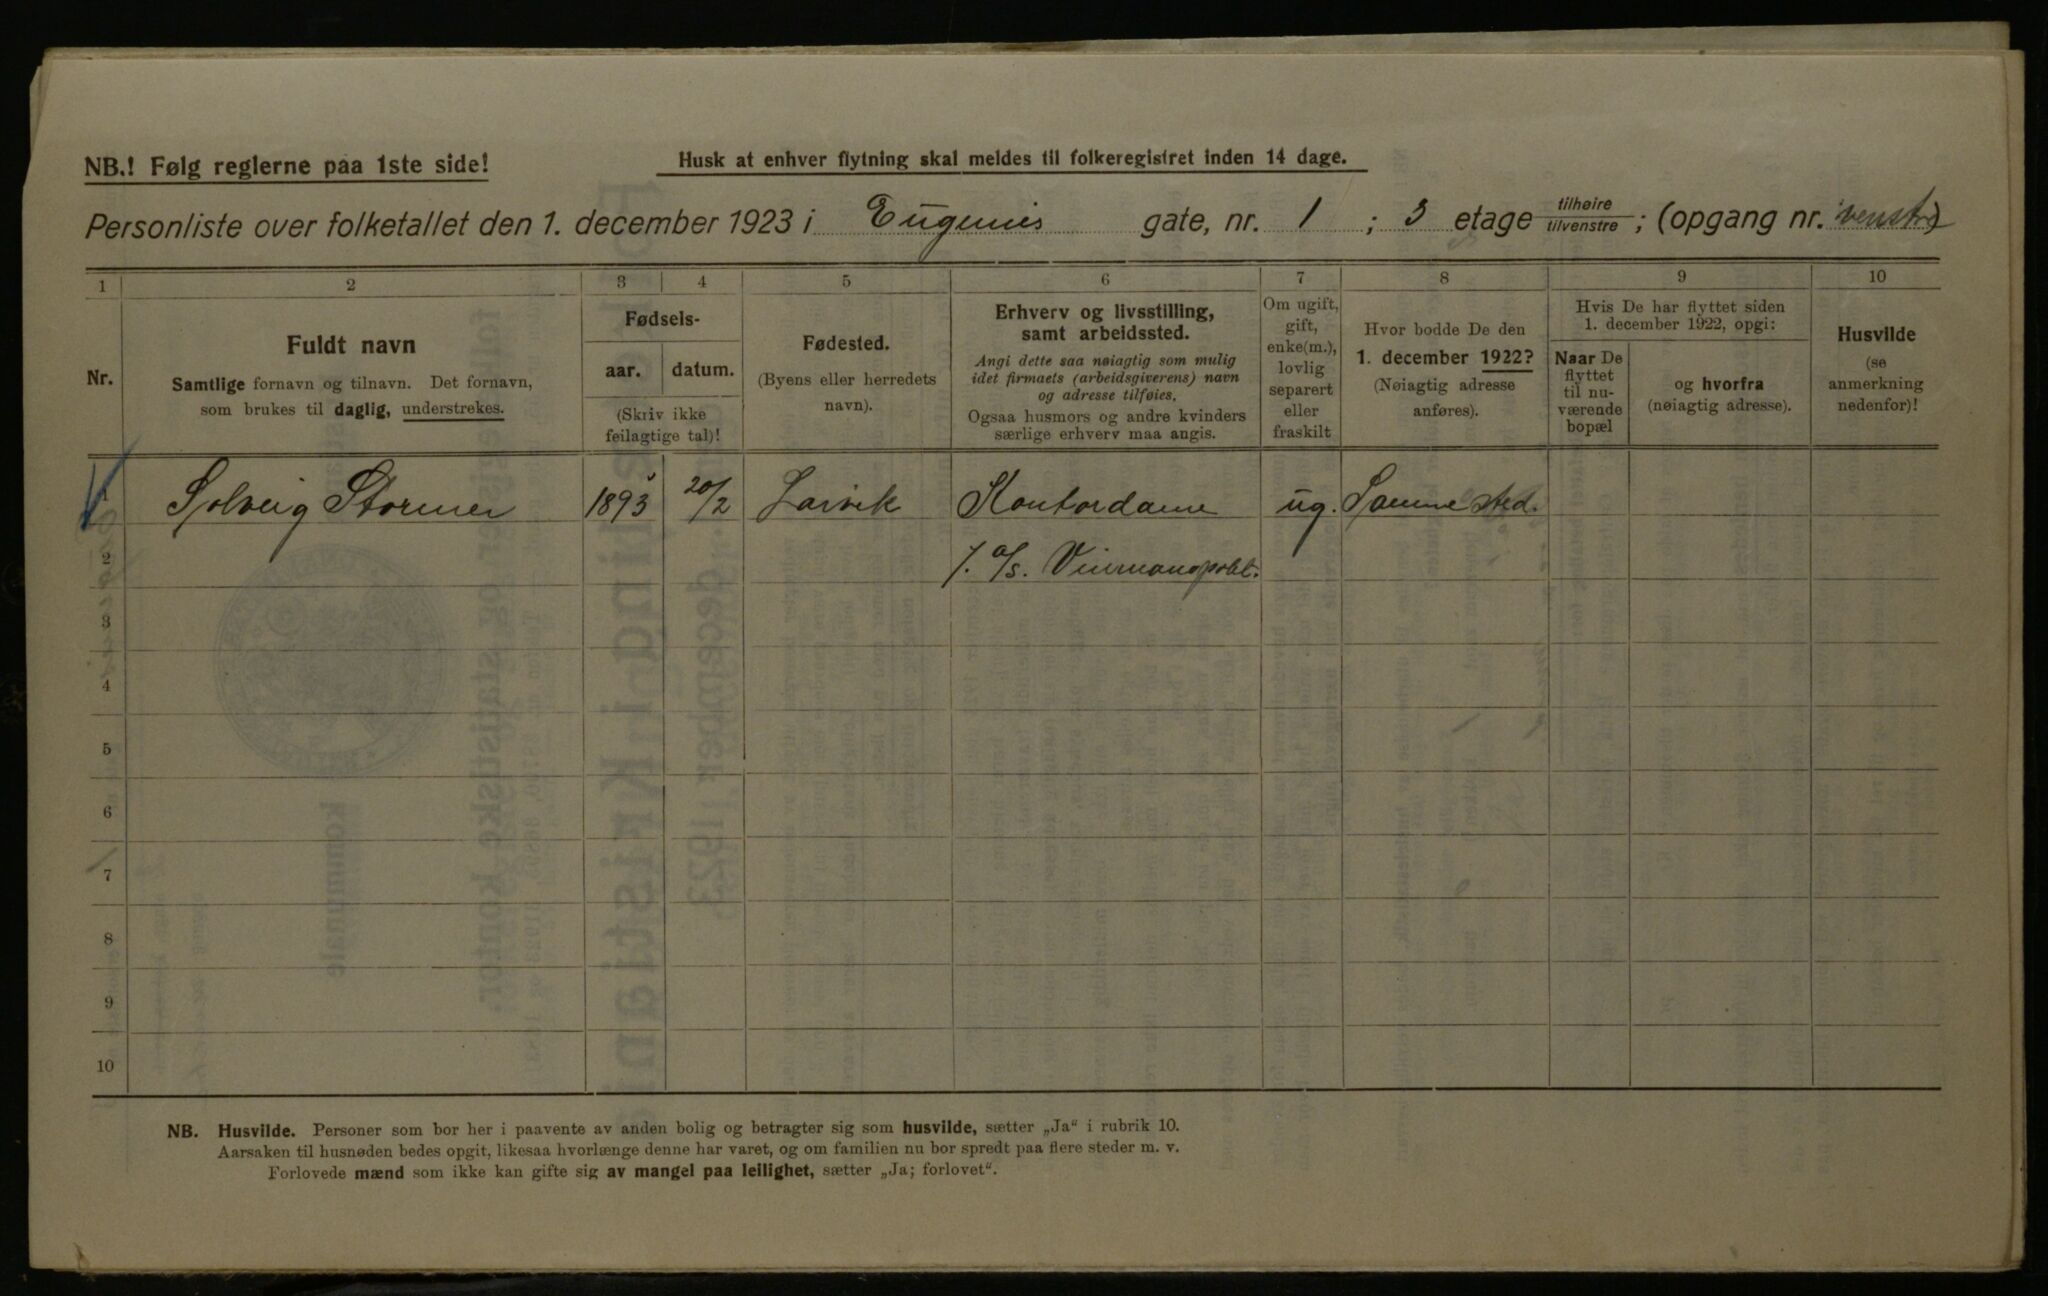 NB.! Følg reglerne paa 1ste side!
Husk at enhver flytning skal meldes til folkeregistret inden 14 dage.
Personliste over folketallet den 1. december 1923 i Eugenies gate, nr. 1 ; 3 etage tilhøire tilvenstre ; (opgang nr. venstre)
1 2 3 4 5 6 7 8 9 10
Nr.
Fuldt navn
Samtlige fornavn og tilnavn. Det fornavn,
som brukes til daglig, understrekes.
Fødsels-
aar. datum.
(Skriv ikke
feilagtige tal)!
Fødested.
(Byens eller herredets
navn).
Erhverv og livsstilling,
samt arbeidssted.
Angi dette saa nøiagtig som mulig
idet firmaets (arbeidsgiverens) navn
og adresse tilføies.
Ogsaa husmors og andre kvinders
særlige erhverv maa angis.
Om ugift,
gift,
enke(m.),
lovlig
separert
eller
fraskilt
Hvor bodde De den
1. december 1922?
(Nøiagtig adresse
anføres).
Hvis De har flyttet siden
1. december 1922, opgi:
Naar De
flyttet
til nu-
værende
bopæl
og hvorfra
(nøiagtig adresse).
Husvilde
(se
anmerkning
nedenfor)!
1 Solveig Stormer 1893 20/2 Larvik Kontordame ug. Samme sted.
2 A/s.
3
4
5
6
7
8
9
10
NB. Husvilde. Personer som bor her i paavente av anden bolig og betragter sig som husvilde, sætter „Ja" i rubrik 10.
Aarsaken til husnøden bedes opgit, likesaa hvorlænge denne har varet, og om familien nu bor spredt paa flere steder m. v.
Forlovede mænd som ikke kan gifte sig av mangel paa leilighet, sætter „Ja; forlovet".